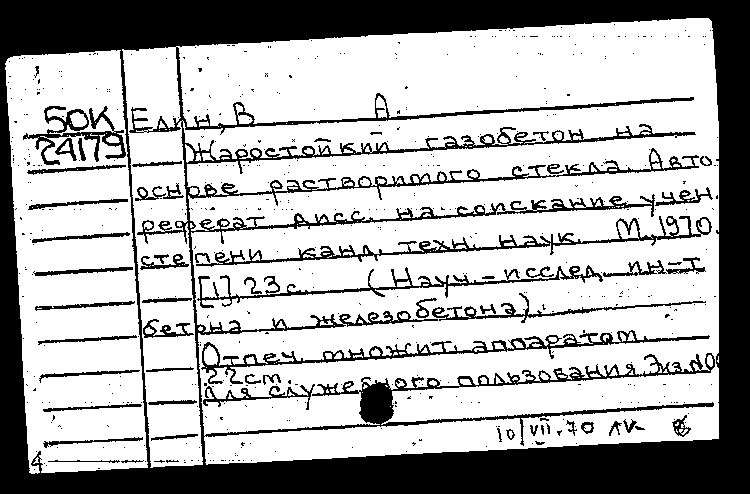 50К Елин, В А.
24179 Жаростойкий газобетон на
основе растворимого стекла. Авто-
реферат дисс. на соискание учен.
степени канд. техн. наук. М., 1970.
[1], 23 с. (Науч.-исслед. ин-т
бетона и железобетона).
Отпеч. множит. аппаратом.
22 см.
Для служебного пользования. Экз.
10/VII.70
4